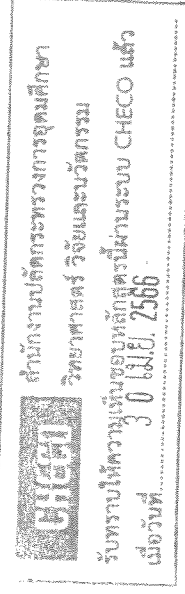 CHECO
สำนักงานปลัดกระทรวงการอุดมศึกษา
วิทยาศาสตร์ วิจัยและนวัตกรรม
รับทราบให้ความเห็นชอบหลักสูตรนี้ผ่านระบบ CHECO แล้ว
เมื่อวันที่ 3 0 เม.ย. 2566